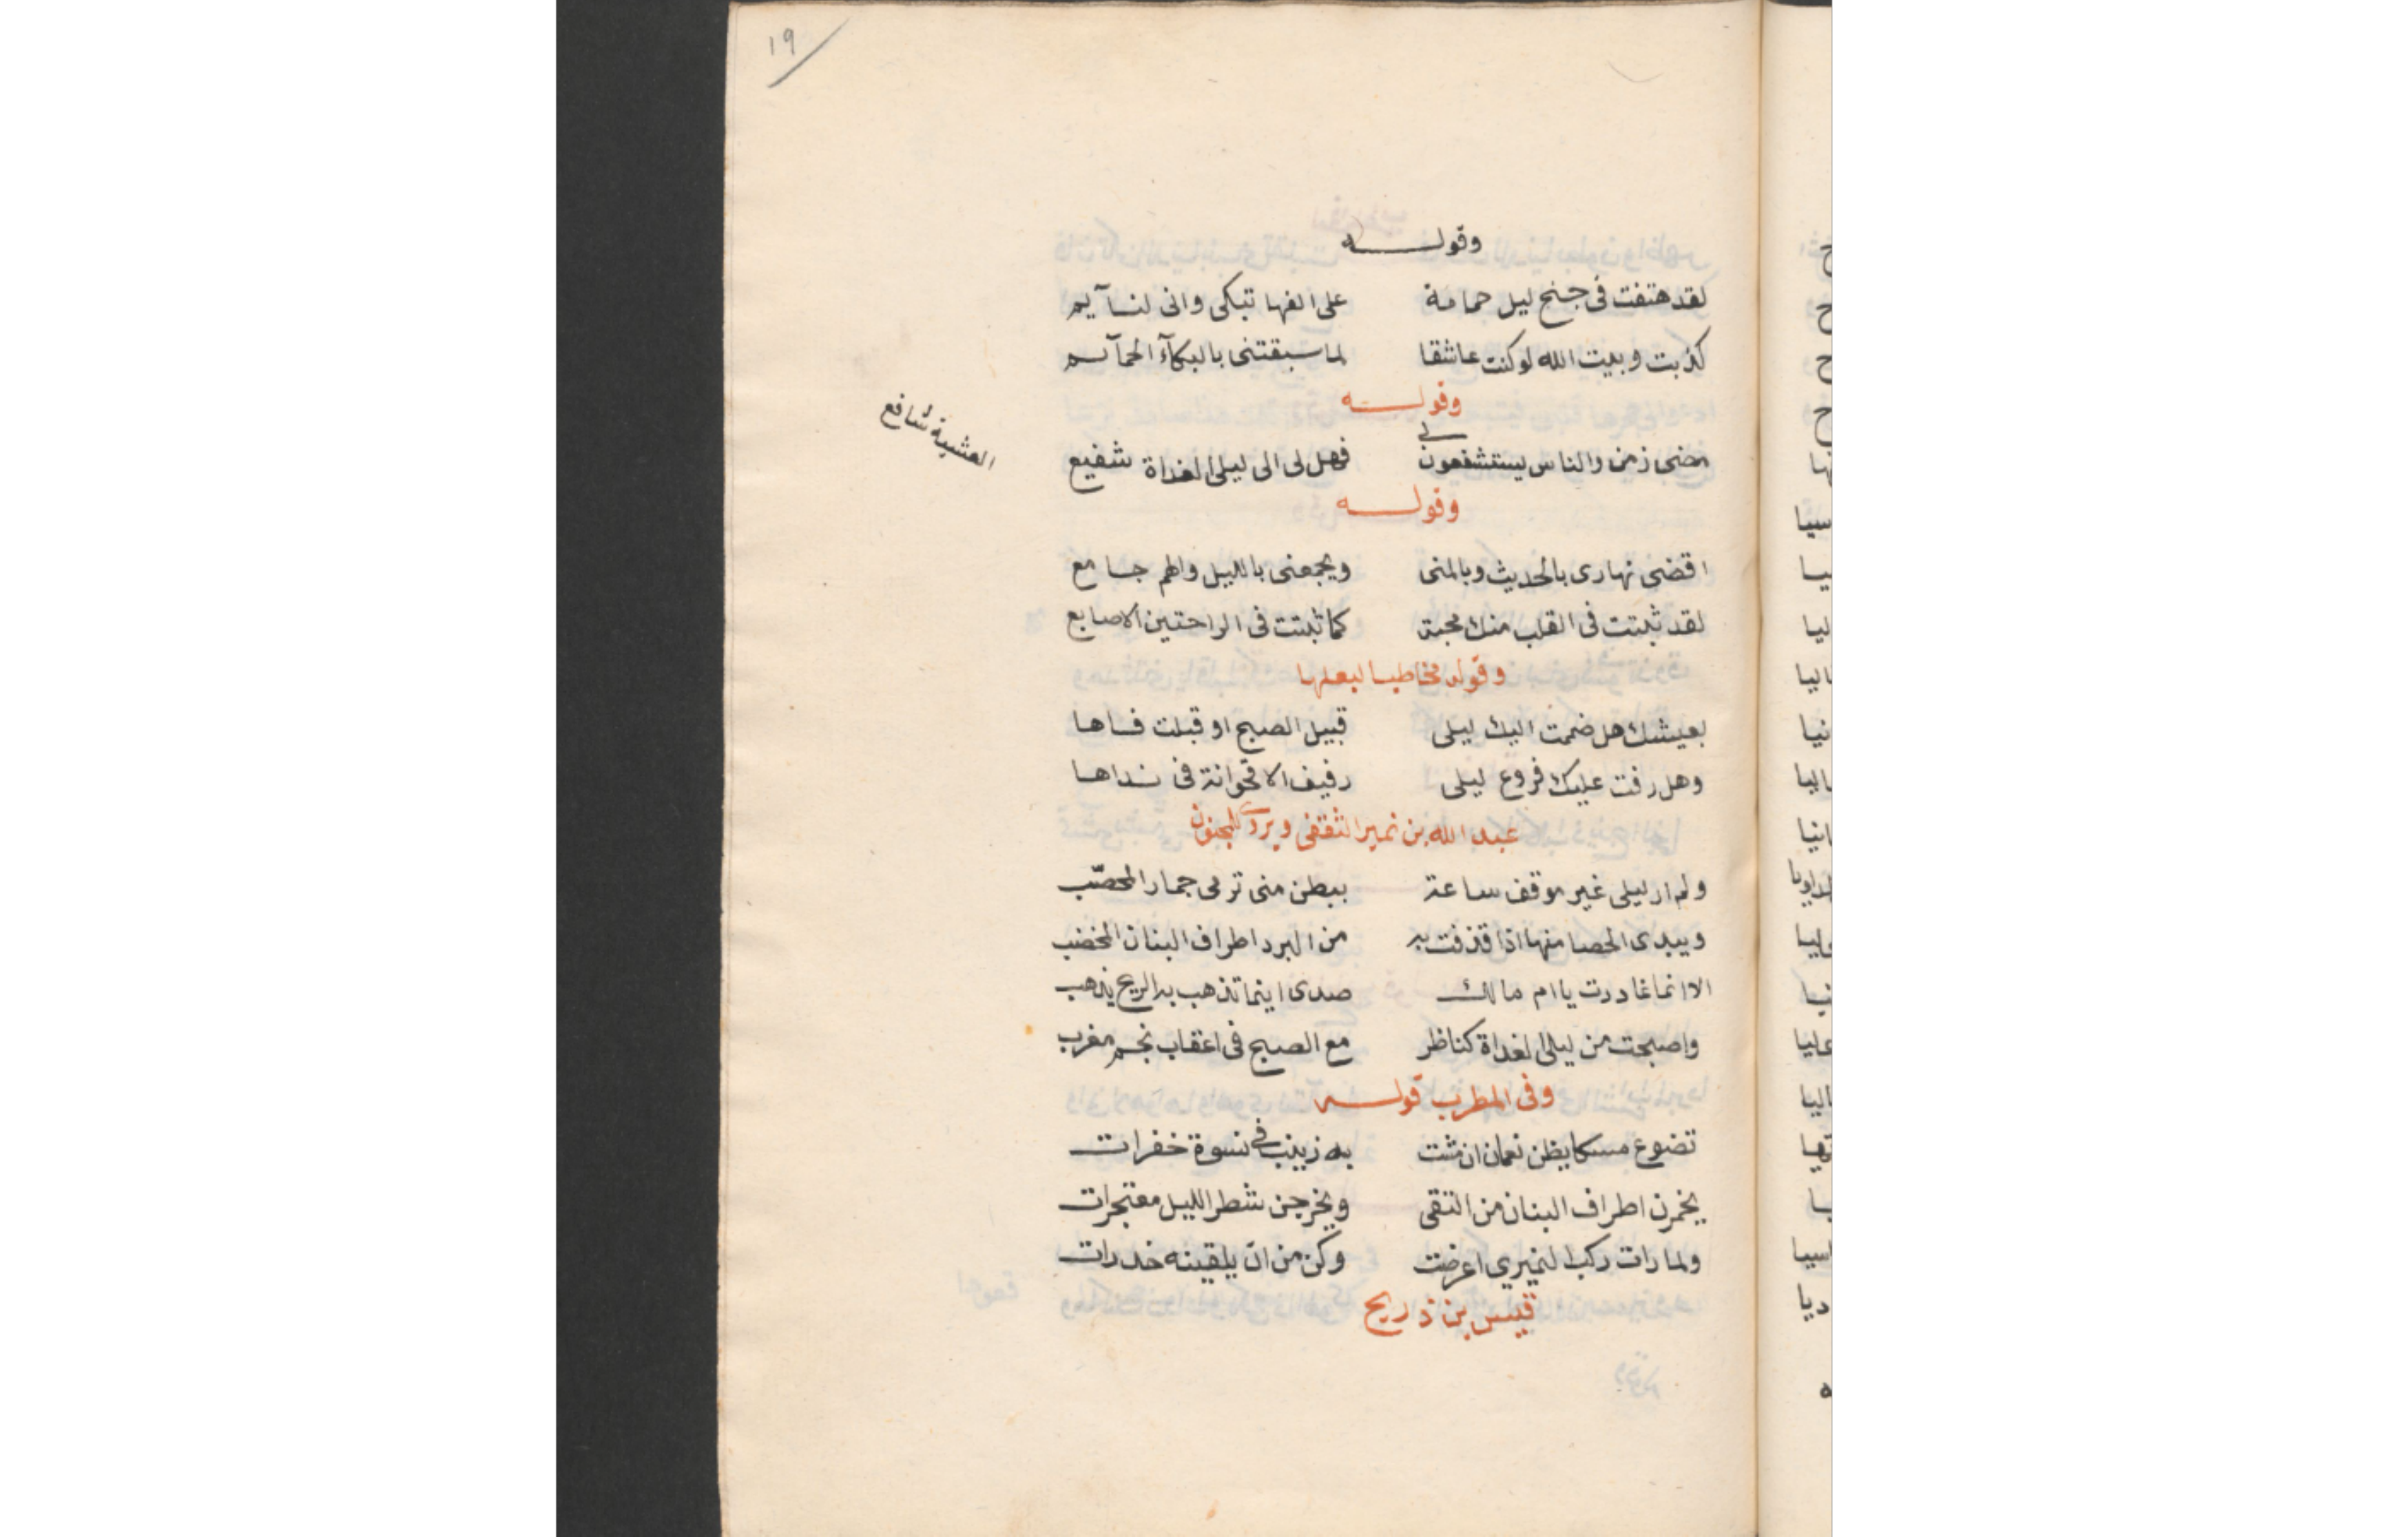 ١٩
وقولـــه
لقد هتفت في جنح ليل حمامة على الفها تبكى وانى لنـآيم
كذبت وبيت الله لو كنت عاشقا لما سبقتنى بالبكآء الحمآئـم
وقولـــه
مضى زمن والناس يستشفعون لى فهل لى الى ليلى الغداة شفيع
العشية شافع
وقولـــه
اقضى نهارى بالحديث وبالمنى ويجمعنى بالليل والهم جـامع
لقد ثبتت فى القلب منك محبة كما ثبتت فى الراحتين الاصابع
وقوله مخاطبـا لبعلها
بعيشك هل ضممت اليك ليلى قبيل الصبح او قبلت فـاها
وهل رفت عليك فروع ليلى رفيف الاقحوانة فى نـداها
عبد الله بن نمير الثقفى ويروى للمجنون
ولم ار ليلى غير موقف ساعة ببطن منى ترمى جمار المحصّب
ويبدى الحصا منها اذا قذفت به من البرد اطراف البنان المخضب
الا انما غادرت يا ام مالك صدى اينما تذهب به الريح يذهب
واصبحت من ليلى الغداة كناظر مع الصبح فى اعقاب نجـم مغرب
وفى المطرب قولـــه
تضوع مسكا بظن نعمان ان مشت به زينب فى نسوة خفرات
يخمرن اطراف البنان من التقى ويخرجن شطر الليل معتجرات
ولما رات ركب النميري اعرضت وكن من ان يلقينه حذرات
قيس بن ذريح